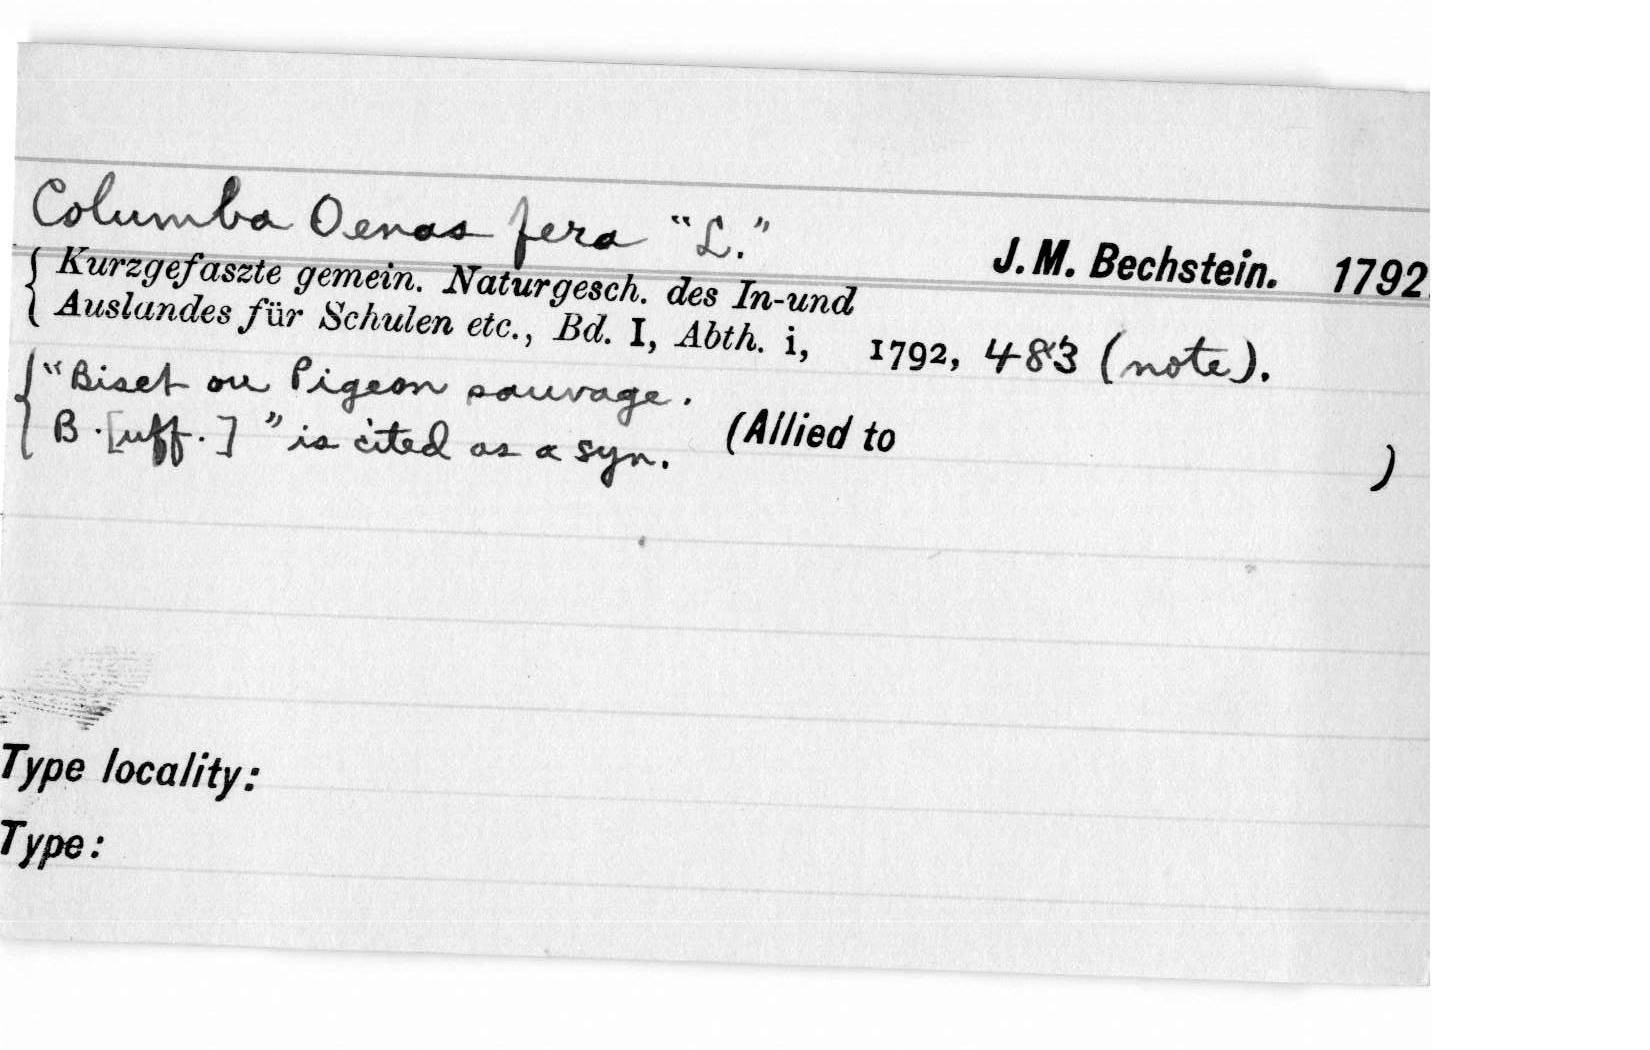 Columba Oenas fera "L."
J. M. Bechstein. 1792.
Kurzgefaszte gemein. Naturgesch. des In-und
Auslandes für Schulen etc., Bd. I, Abth. i, 1792, 483 (note).
"Biset ou Pigeon sauvage.
B.[uff.]" is cited as a syn. (Allied to )
Type locality:
Type: